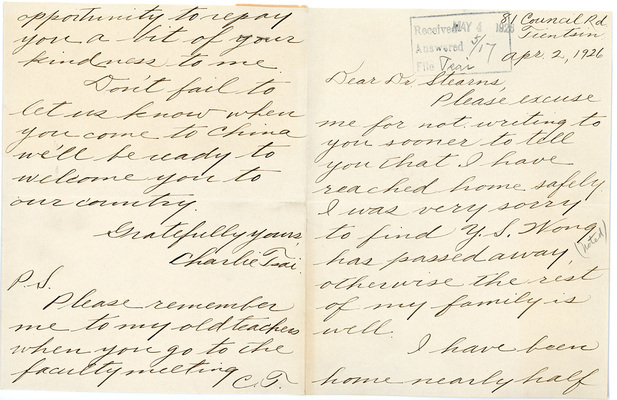 opportunity to repay
you a bit of your
kindness to me.
Don't fail to
let us know when
you come to China
we'll be ready to
welcome you to
our country.
Gratefully yours,
Charlie Tsai.
P.S.
Please remember
me to my old teachers
when you go to the
faculty meeting
C.T.
81 Council Rd
Tientsin
Apr. 2, 1926
Received MAY 4 1926
Answered 5/17
File Tsai
Dear Dr. Stearns,
Please excuse
me for not writing to
you sooner to tell
you that I have
reached home safely.
I was very sorry
to find Y. S. Wong
(noted)
has passed away,
otherwise the rest
of my family is
well.
I have been
home nearly half